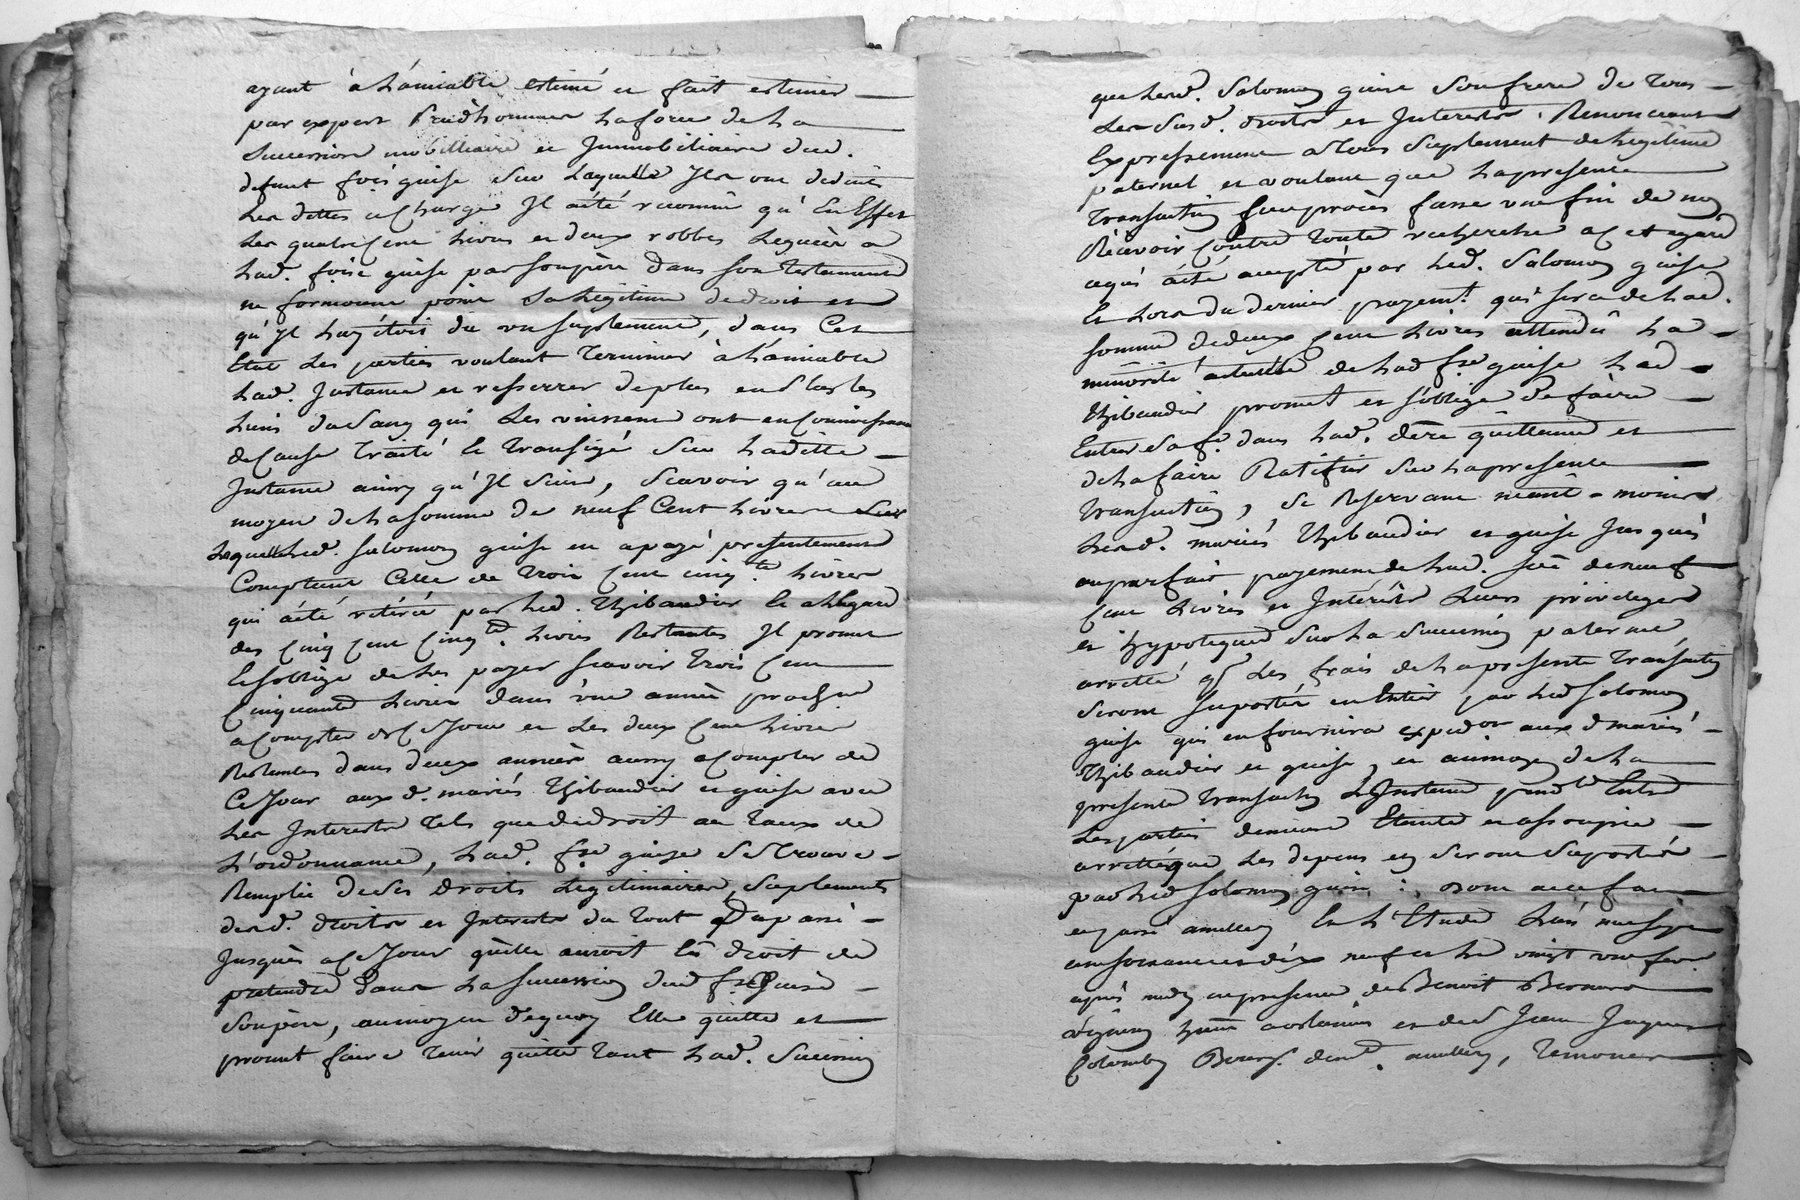 ayant à l'amiable estimé et fait estimer
par expert Prud'hommes la force de la
Succession mobilliaire et Jmmobiliaire dud.
defunt foi guise Sur laquelle Jls ont deduits
Les dettes et charge Jl a été reconnu qu'En Effet
Les quatre Cent livres et deux robbes Leguées a
lad. foise guise par son père dans son testament
ne formoient point Sa Legitime de droit et
qu'Jl luy étoit du un suplement, dans Cet
Etat Les parties voulant terminer à l'amiable
lad. Jnstance et resserrer de plus en plus les
liens du Sang qui Les unissent ont en Connoissance
de Cause traité et transigé Sur laditte
Jnstance ainsy qu'Jl Suit, Scavoir qu'au
moyen de la somme de neuf Cent livres Sur
Laquelle led. Salomon guise en a payé presentement
Comptant Celle de trois Cent cinq.te livres
qui a été retirée par led. Thibaudier Et a l'Egard
des Cinq Cent Cinq.te livres Restantes Jl promet
Et s'oblige de Les payer scavoir trois Cent
Cinquante livres dans une année proch.ne
a Compter de Ce Jour et Les deux Cent livres
Restantes dans deux années aussy a Compter de
Ce Jour aux d. mariés Thibaudier et guise avec
Les Jnterets tels que de droit au taux de
L'ordonnance, lad. f.se guise Se trouve
Remplie de Ses droits Legitimaires, Suplements
desd. droits et Jnterets du tout
Jusques a Ce Jour qu'elle auroit Eû droit de
pretendre dans La Succession dud. guise
Son père, au moyen de quoy Elle quitte et
promet faire tenir quitte tant lad. Succession
que led. Salomon guise Son frere de tous
Les Susd. droits et Jnterets. Renonceant
Expressement a tous Suplement de Legitime
paternel et voulant que la presente
transaction fasse une fin de non
Recevoir Contre toute recherche a Cet egard
ce qui a été accepté par led. Salomon guise
Et Lors du dernier payem.t qui sera de lad.
somme de deux Cent livres attendû la
minorité actuelle de lad f.se guise led
Thibaudier promet et s'oblige de faire
Entrer Sa f.e dans lad. dere quittance et
de la faire Ratifier Sur la presente
transaction, Se Reservant neant-moins
Lesd. mariés Thibaudier et guise Jusques
au parfait payement de lad. so.e de neuf
Cent livres et Jnterêts Leurs privileges
et hypoteques Sur la Succession paternel
arretté q.e Les frais de la presente transaction
Seront Suportés en Entier par led Salomon
guise qui en fournira expedon aux d mariés
Thibaudier et guise, et au moyen de la
presente transaction L'Jnstance pend.te Entre
Les parties demeure Eteinte et assoupie
arretté que Les depens en Seront Suportés
par led Salomon guise : dont acte fait
et passé En l'Etude L'an mil sept
cent soixante et dix neuf et le vingt un fev.
après midy en presence de Benoit Bernard
et de S Jean Jaques
Colomby Bourg. de, temoins